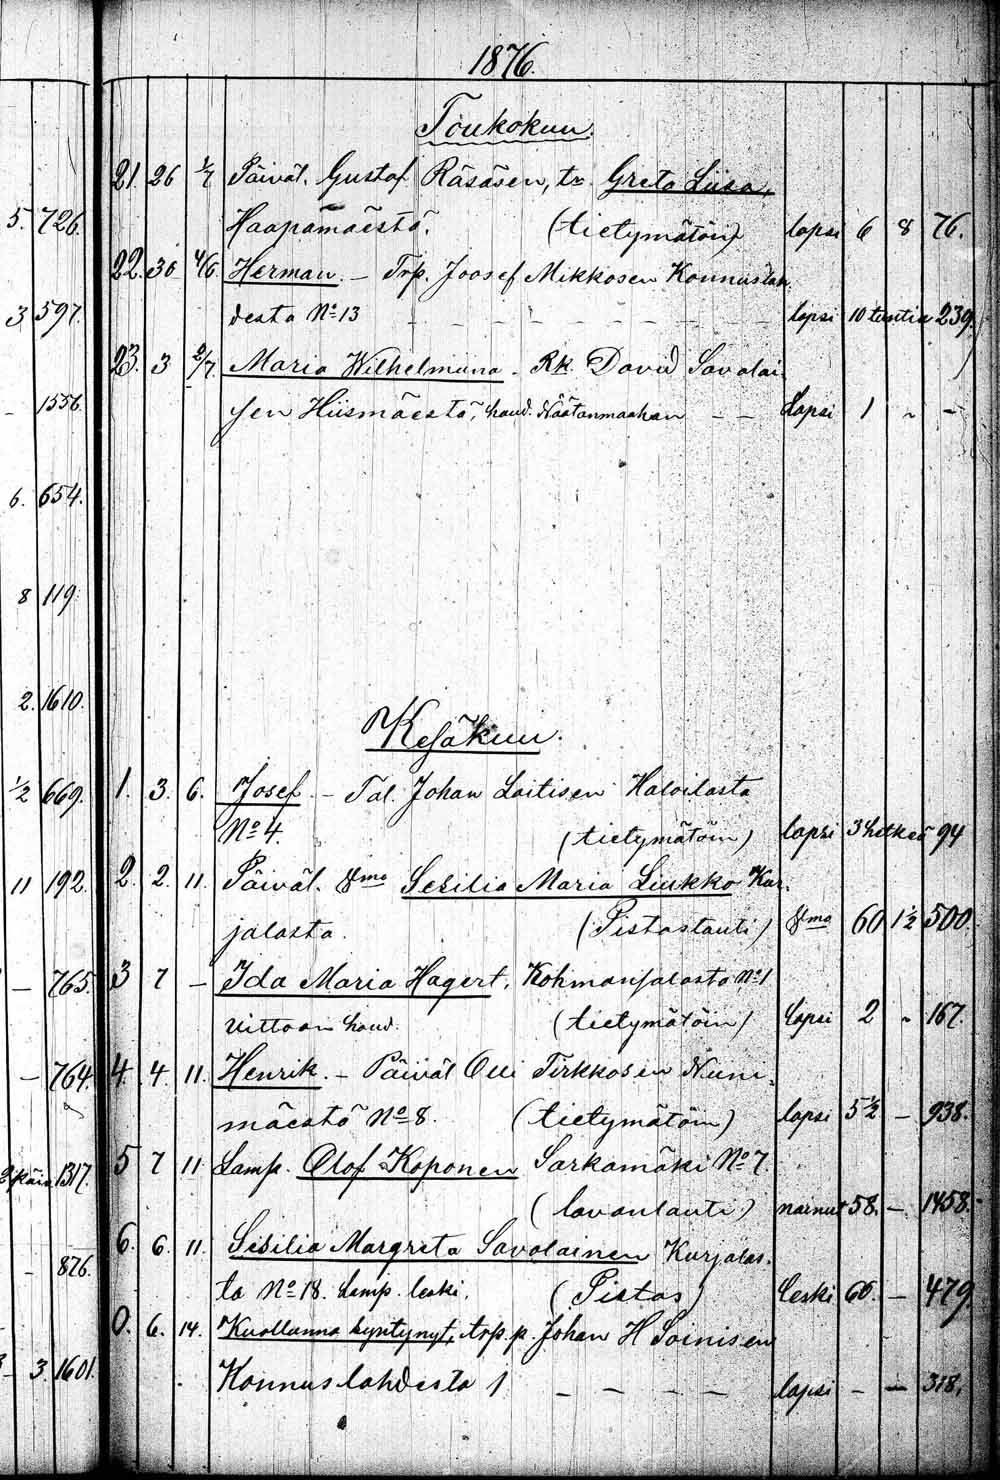 1876.
Toukokuu.
21. 26 1/7 Päiväl. Gustaf Räsäsen, tr. Greta Liisa,
5. 726. Haapamäestä. (tietymätöin) lapsi 6 8 76.
22. 30 4/6 Herman. – Trp. Joosef Mikkosen Konnuslah
3 597. desta No 13 – – – – – – – lapsi 10 tuntia 239.
23. 3 2/7. Maria Wilhelmiina – Rk. David Savolai
– 1556. sen Hiismäestä, haud. Näätänmaahan – – Lapsi 1 „ –
6. 654.
8 119.
2. 1610.
Kesäkuu.
1/2 669. 1. 3. 6. Josef. – Tal. Johan Laitisen Haloilasta
No 4. (tietymätöin) lapsi 3 hetkeä 94
11 192. 2. 2. 11. Päiväl. Vmo Sesilia Maria Liukko Kur.
jalasta. (Pistostauti) Vmo 60 1 1/2 500.
– 765. 3 7 – Ida Maria Hagert, Kohmansalosta, No 1
haud. (tietymätöin) Lapsi 2 „ 167.
– 764. 4. 4 11. Henrik. – Päiväl Olli Tirkkosen Nuni.
mäestä No 8. (tietymätöin) lapsi 5 1/2 – 938.
1317. 5 7 11 Lamp. Olof Koponen Sarkamäki No 7
(lavantauti) nainut 58. – 1458.
– 876. 6. 6. 11. Sesilia Margreta Savolainen Kurjalas.
ta No 18. Lamp. leski. (Pistos) Leski 60. – 479.
0. 6. 14. Kuollunna syntynyt, trp. p. Johan H Soinisen
– 3. 1601. Konnuslahdesta 1 – – – – lapsi – – 318.